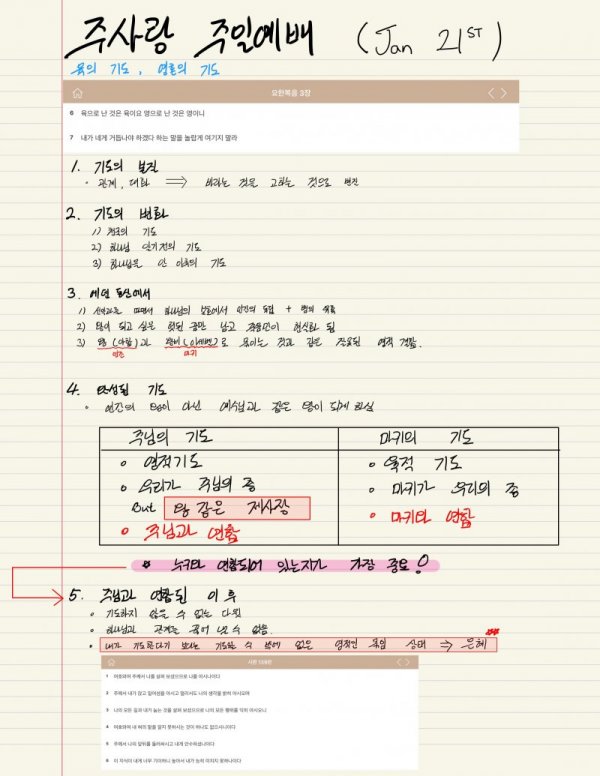 주사랑 주일예배 (Jan 21ST)
육의 기도, 영혼의 기도
요한복음 3장
6 육으로 난 것은 육이요 영으로 난 것은 영이니
7 내가 네게 거듭나야 하겠다 하는 말을 놀랍게 여기지 말라
1. 기도의 본질
• 관계, 대화 ⇒ 바라는 것을 고하는 것으로 변질
2. 기도의 변화
1) 기도
2) 하나님 알기전의 기도
3) 하나님을 안 이후의 기도
3. 에덴 동산에서
1) 선악과를 하나님의 인간의 독립 +
2) 왕이 되고 싶은 헛된 남고
3) 왕(아담)과 로 묶이는 것과 같은 영적 결합
인간
마귀
4. 완성된 기도
• 인간의 왕이 아닌 예수님과 같은 왕이 되게 하심
주님의 기도
마귀의 기도
• 영적기도
• 육적 기도
• 우리가 주님의 종
• 마귀가 우리의 종
But 왕 같은 제사장
• 주님과 연합
• 마귀와 연합
* 누구와 연합되어 있는지가 가장 중요!
5. 주님과 연합된 이후
• 기도하지 않을 수 없는 단계
• 하나님과 관계는 끊어 낼 수 없음.
• 내가 기도한다기 보다는 기도할 수 밖에 없은 영적인 묶임 상태 ⇒ 은혜
시편 139편
1 여호와여 주께서 나를 살펴 보셨으므로 나를 아시나이다
2 주께서 내가 앉고 일어섬을 아시고 멀리서도 나의 생각을 밝히 아시오며
3 나의 모든 길과 내가 눕는 것을 살펴 보셨으므로 나의 모든 행위를 익히 아시오니
4 여호와여 내 혀의 말을 알지 못하시는 것이 하나도 없으시니이다
5 주께서 나의 앞뒤를 둘러싸시고 내게 안수하셨나이다
6 이 지식이 내게 너무 기이하니 높아서 내가 능히 미치지 못하나이다